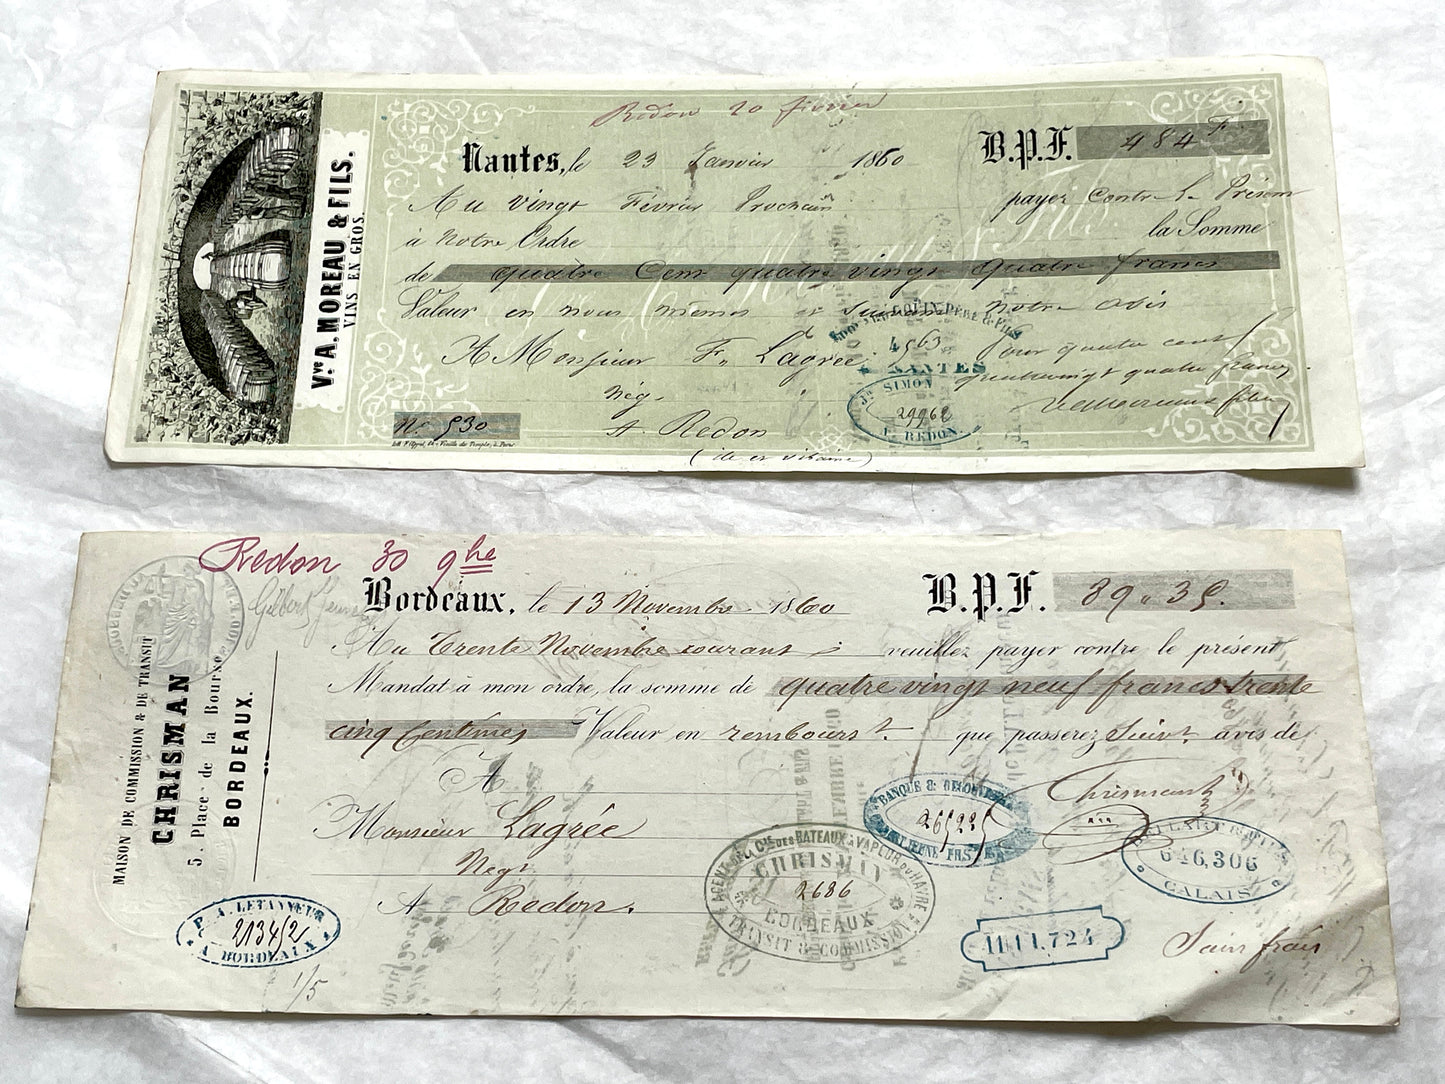 Redon 20 février
Nantes, le 23 Janvier 1860
B.P.F. 484 F.
Au Vingt Février Prochain payez Contre le Présent
à Notre Ordre la Somme
de quatre Cent quatre vingt quatre francs
Valeur en nous mêmes et Suivant notre avis
A Monsieur F. Lagrée
nég.
A Redon
(ile et vilaine)
Pour quatre cent
quatrevingt quatre francs
No 530
Vve A. MOREAU & FILS.
VINS EN GROS.
ÉDOUARD GOUIN PÈRE & FILS
4563
NANTES
SIMON
29962
REDON
Redon 30 9bre
Bordeaux, le 13 Novembre 1860
B.P.F. 89,,35.
Au Trente Novembre courant veuillez payer contre le présent
Mandat à mon ordre, la somme de quatre vingt neuf francs trente
cinq Centimes Valeur en rembourst. que passerez Suivt. avis de
A
Monsieur Lagrée
Negt
A Redon.
Chrisman
Sans frais
MAISON DE COMMISSION & DE TRANSIT
CHRISMAN
5, Place de la Bourse
BORDEAUX.
P. A. LETANNEUR
2134/2
A BORDEAUX
1/5
AGENT DE LA Cie DES BATEAUX A VAPEUR DU HAVRE
CHRISMAN
2686
BORDEAUX
TRANSIT & COMMISSION
BANQUE &
646,306
CALAIS
1111,724